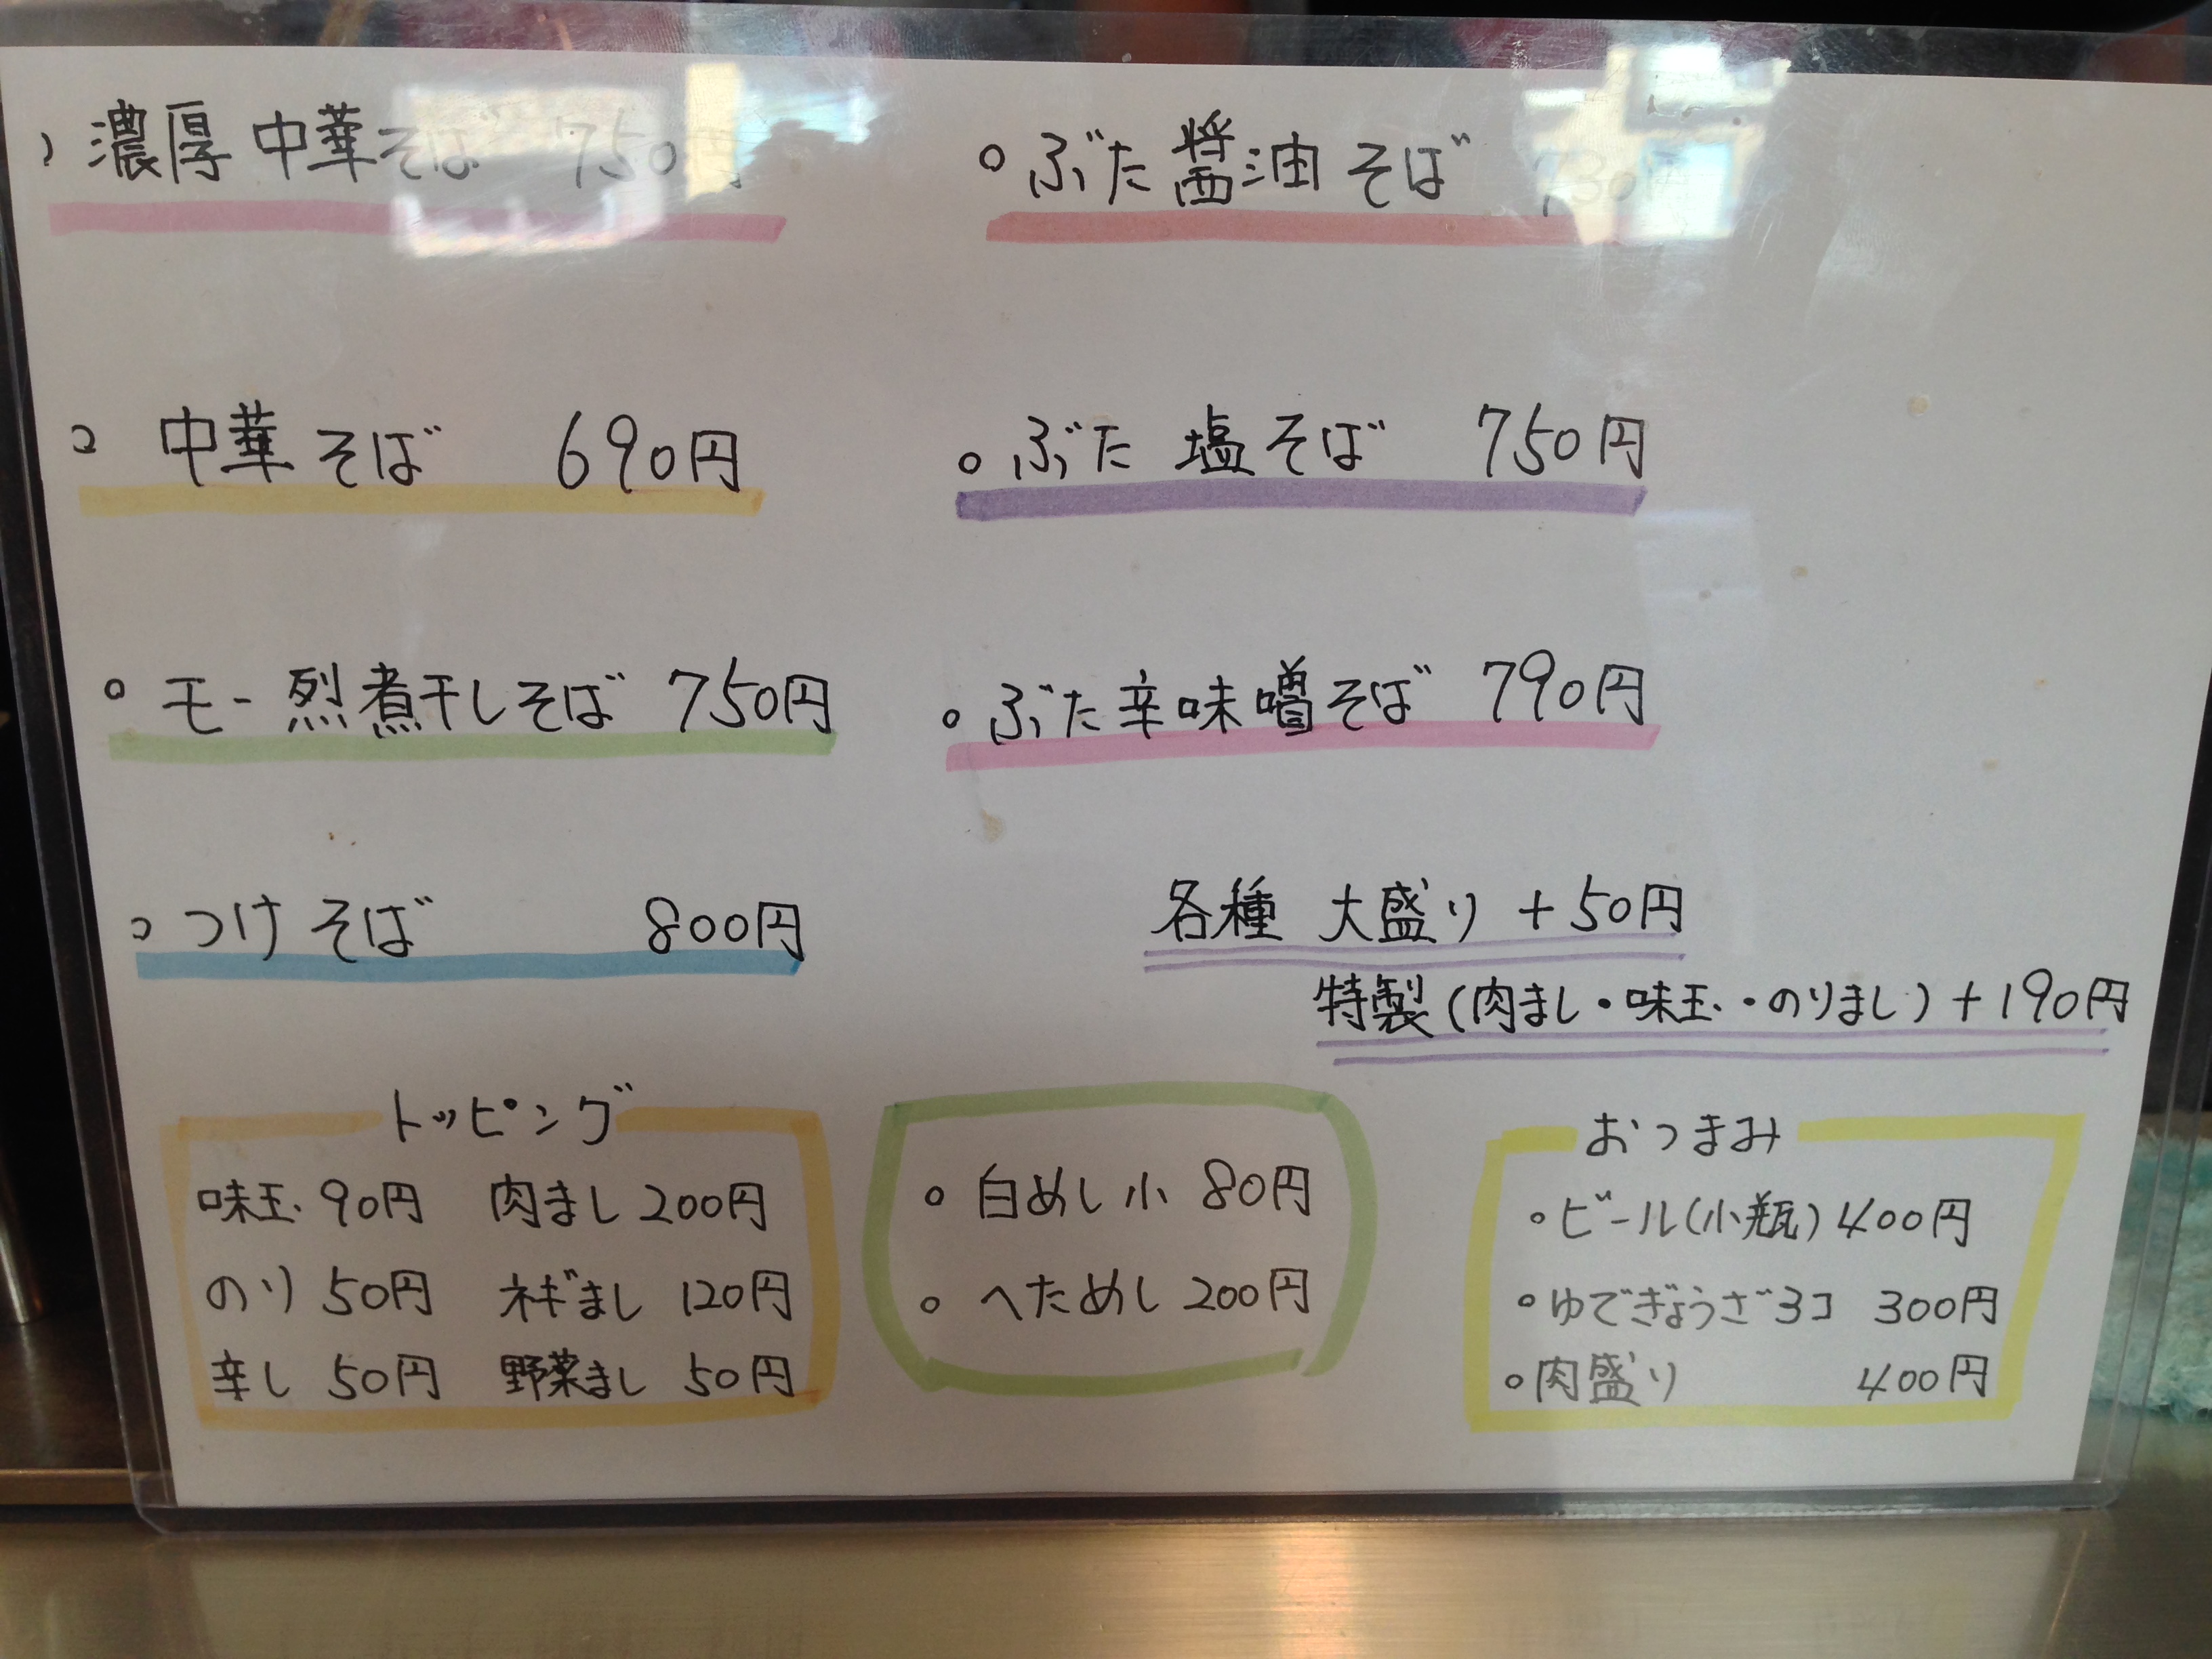 濃厚 中華そば 750円
中華そば 690円
モー烈煮干しそば 750円
つけそば 800円
ぶた醤油そば 730円
ぶた塩そば 750円
ぶた辛味噌そば 790円
各種 大盛り +50円
特製(肉まし・味玉・のりまし)+190円
トッピング
味玉 90円 肉まし 200円
のり 50円 ネギまし 120円
辛し 50円 野菜まし 50円
白めし小 80円
へためし 200円
おつまみ
ビール(小瓶)400円
ゆでぎょうざ3コ 300円
肉盛り 400円